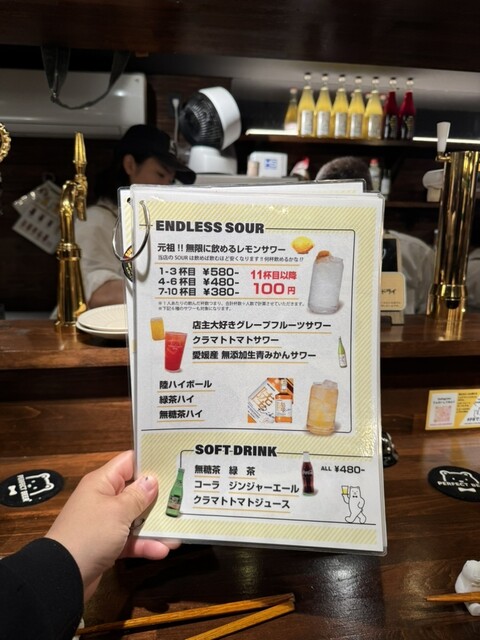 ENDLESS SOUR
元祖!! 無限に飲めるレモンサワー
当店の SOUR は飲めば飲むほど安くなります!何杯飲めるかな!?
1-3 杯目 ¥580-
4-6 杯目 ¥480-
7-10 杯目 ¥380-
11杯目以降
100円
店主大好きグレープフルーツサワー
クラマトトマトサワー
愛媛産 無添加生青みかんサワー
陸ハイボール
緑茶ハイ
無糖茶ハイ
SOFT DRINK
無糖茶 緑 茶
コーラ ジンジャーエール
クラマトトマトジュース
ALL ¥480-
PERFECT